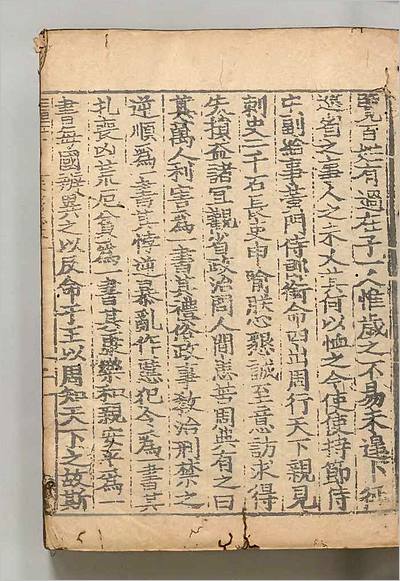 百姓有過在予一人惟歲之不易未遑卜征
巡省之事人之未乂其何以恤之今使使持節侍
中副給事黃門侍郎銜命四出周行天下親見
刺史二千石長吏申喻朕心懇誠至意訪求得
失損益諸宜觀省政治問人間患苦周典有之曰
其萬人利害爲一書其禮俗政事教治刑禁之
逆順爲一書其悖逆暴亂作慝犯令爲一書其
札喪凶荒厄貧爲一書其康樂和親安平爲一
書每國辨異之以反命于王以周知天下之故斯